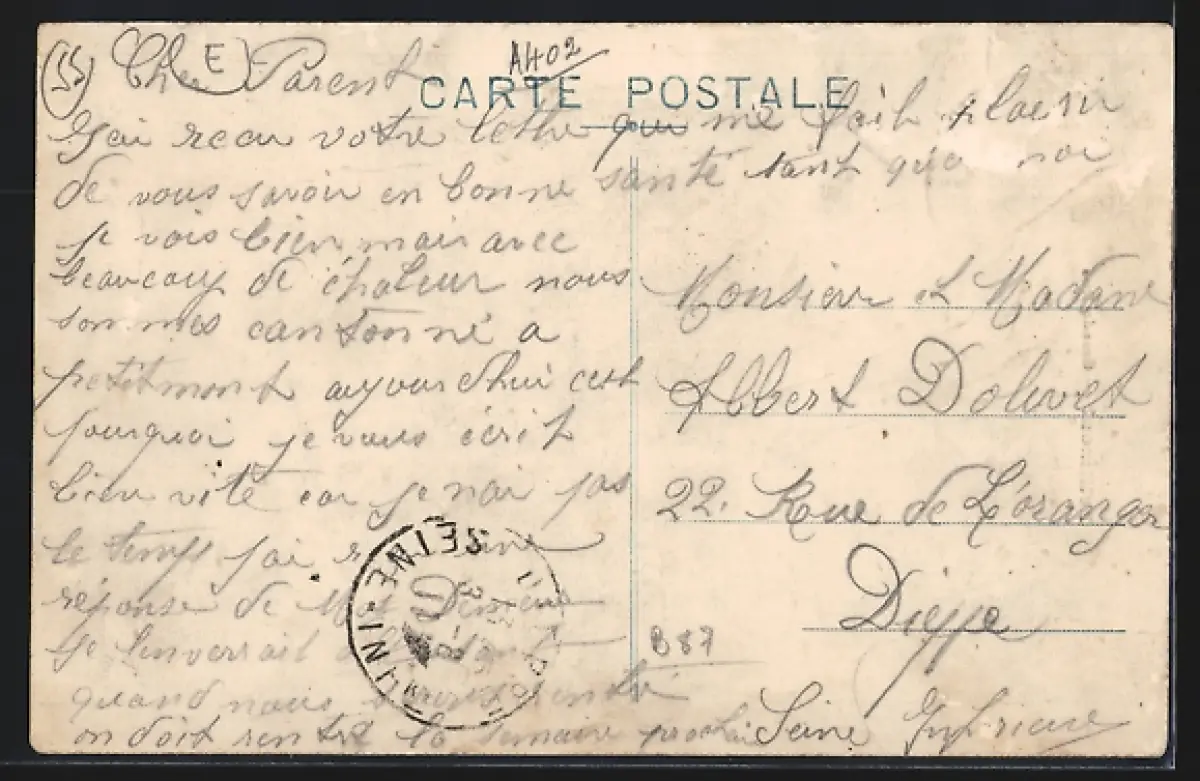 (55) Cher Parent
E
A402
CARTE POSTALE
J'ai recu votre lettre qui me fait plaesir
de vous savoir en bonne santé tant qu'a moi
je vois bien mais avec
beaucoup de chaleur nous
sommes cantonné a
petitmont aujourdhui cest
pourquoi je vous écrit
bien vite car je nai pas
le temps jai
réponse de
je lenverrait
quand nous
on doit rentré la semaine
Monsieur et Madame
Albert Dolivet
22. Rue de L'oranger
Dieppe
Seine Inferieure
B87
SEINE-INF